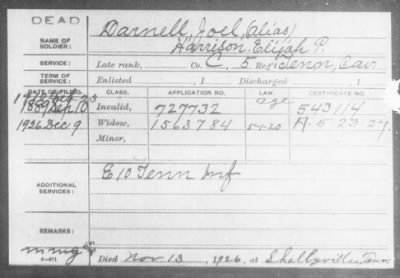 DEAD
NAME OF SOLDIER: Darnell, Joel, (alias)
Harrison, Elijah P.
SERVICE: Late rank, Co. C, 5 Reg't Tenn, Cav
TERM OF SERVICE: Enlisted , 1 Discharged , 1
DATE OF FILING. CLASS. APPLICATION NO. LAW. CERTIFICATE NO.
1889 Sep Invalid, 727732 age 543114
1926 Dec 9 Widow, 1563784 5-4-20 A. 5 23 27.
Minor,
ADDITIONAL SERVICES: E 10 Tenn Inf
REMARKS:
Died Nov 13, 1926, at Shelbyville, Tenn